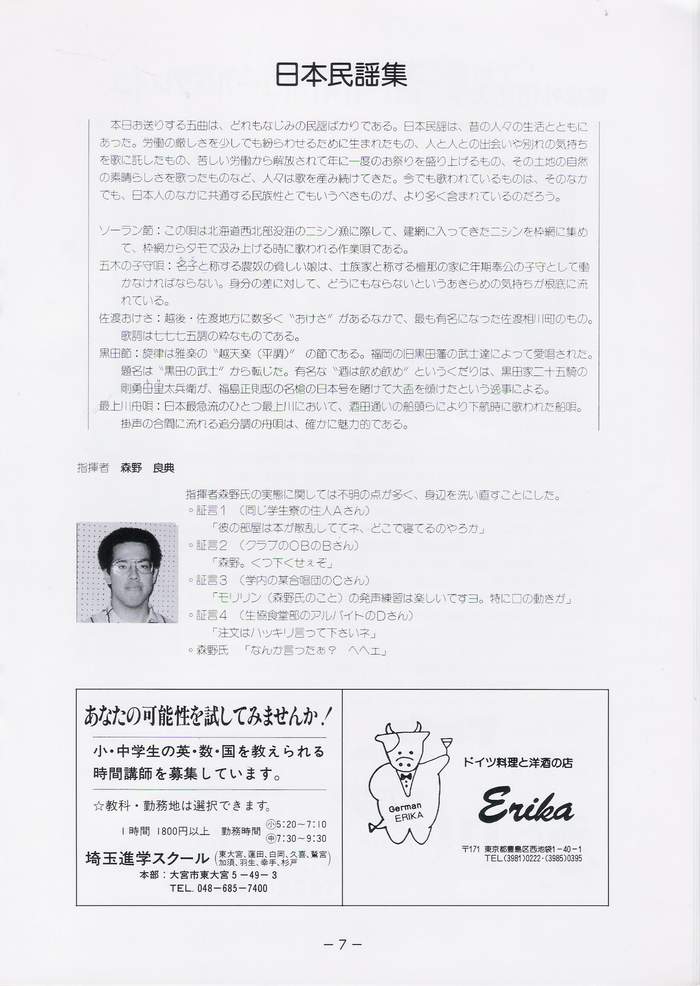 日本民謡集
本日お送りする五曲は、どれもなじみの民謡ばかりである。日本民謡は、昔の人々の生活とともに
あった。労働の厳しさを少しでも紛らわせるために生まれたもの、人と人との出会いや別れの気持ち
を歌に託したもの、苦しい労働から解放されて年に一度のお祭りを盛り上げるもの、その土地の自然
の素晴らしさを歌ったものなど、人々は歌を産み続けてきた。今でも歌われているものは、そのなか
でも、日本人のなかに共通する民族性とでもいうべきものが、より多く含まれているのだろう。
ソーラン節：この唄は北海道西北部沿海のニシン漁に際して、建網に入ってきたニシンを枠網に集め
て、枠網からタモで汲み上げる時に歌われる作業唄である。
五木の子守唄：名子と称する農奴の貧しい娘は、士族家と称する檀那の家に年期奉公の子守として働
かなければならない。身分の差に対して、どうにもならないというあきらめの気持ちが根底に流
れている。
佐渡おけさ：越後・佐渡地方に数多く〝おけさ〟があるなかで、最も有名になった佐渡相川町のもの。
歌詞は七七七五調の粋なものである。
黒田節：旋律は雅楽の〝越天楽（平調）〟の節である。福岡の旧黒田藩の武士達によって愛唱された。
題名は〝黒田の武士〟から転じた。有名な〝酒は飲め飲め〟というくだりは、黒田家二十五騎の
剛勇母里太兵衛が、福島正則邸の名槍の日本号を賭けて大盃を傾けたという逸事による。
最上川舟唄：日本最急流のひとつ最上川において、酒田通いの船頭らにより下航時に歌われた船唄。
掛声の合間に流れる追分調の舟唄は、確かに魅力的である。
指揮者 森野 良典
指揮者森野氏の実態に関しては不明の点が多く、身辺を洗い直すことにした。
◦証言1 （同じ学生寮の住人Aさん）
「彼の部屋は本が散乱しててネ、どこで寝てるのやろか」
◦証言2 （クラブのOBのBさん）
「森野。くつ下くせぇぞ」
◦証言3 （学内の某合唱団のCさん）
「モリリン（森野氏のこと）の発声練習は楽しいですヨ。特に口の動きが」
◦証言4 （生協食堂部のアルバイトのDさん）
「注文はハッキリ言って下さいネ」
◦森野氏 「なんか言ったぁ？ へへェ」
あなたの可能性を試してみませんか！
小・中学生の英・数・国を教えられる
時間講師を募集しています。
☆教科・勤務地は選択できます。
1時間 1800円以上 勤務時間 ㊥5:20～7:10
㊥7:30～9:30
埼玉進学スクール（東大宮、蓮田、白岡、久喜、鷲宮
加須、羽生、幸手、杉戸）
本部：大宮市東大宮5-49-3
TEL. 048-685-7400
German
ERIKA
ドイツ料理と洋酒の店
Erika
〒171 東京都豊島区西池袋1-40-1
TEL(3981)0222・(3985)0395
－7－